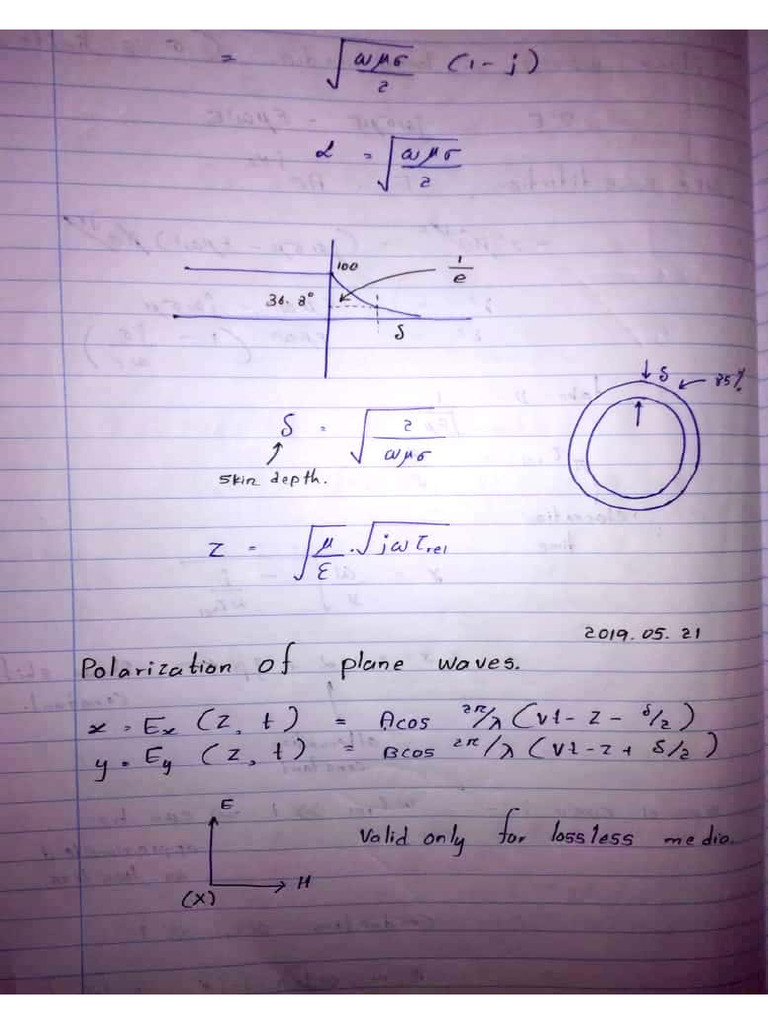 = √(ωμσ/2) (1 - j)
α = √(ωμσ/2)
100
1/e
36.8°
δ
δ
85%
δ = √(2/ωμσ)
skin depth.
Z = √(μ/ε) . √(jωτrel)
2019. 05. 21
Polarization of plane waves.
x = Ex (z, t) = A cos 2π/λ (vt - z - δ/2)
y = Ey (z, t) = B cos 2π/λ (vt - z + δ/2)
E
Valid only for lossless media.
H
(X)